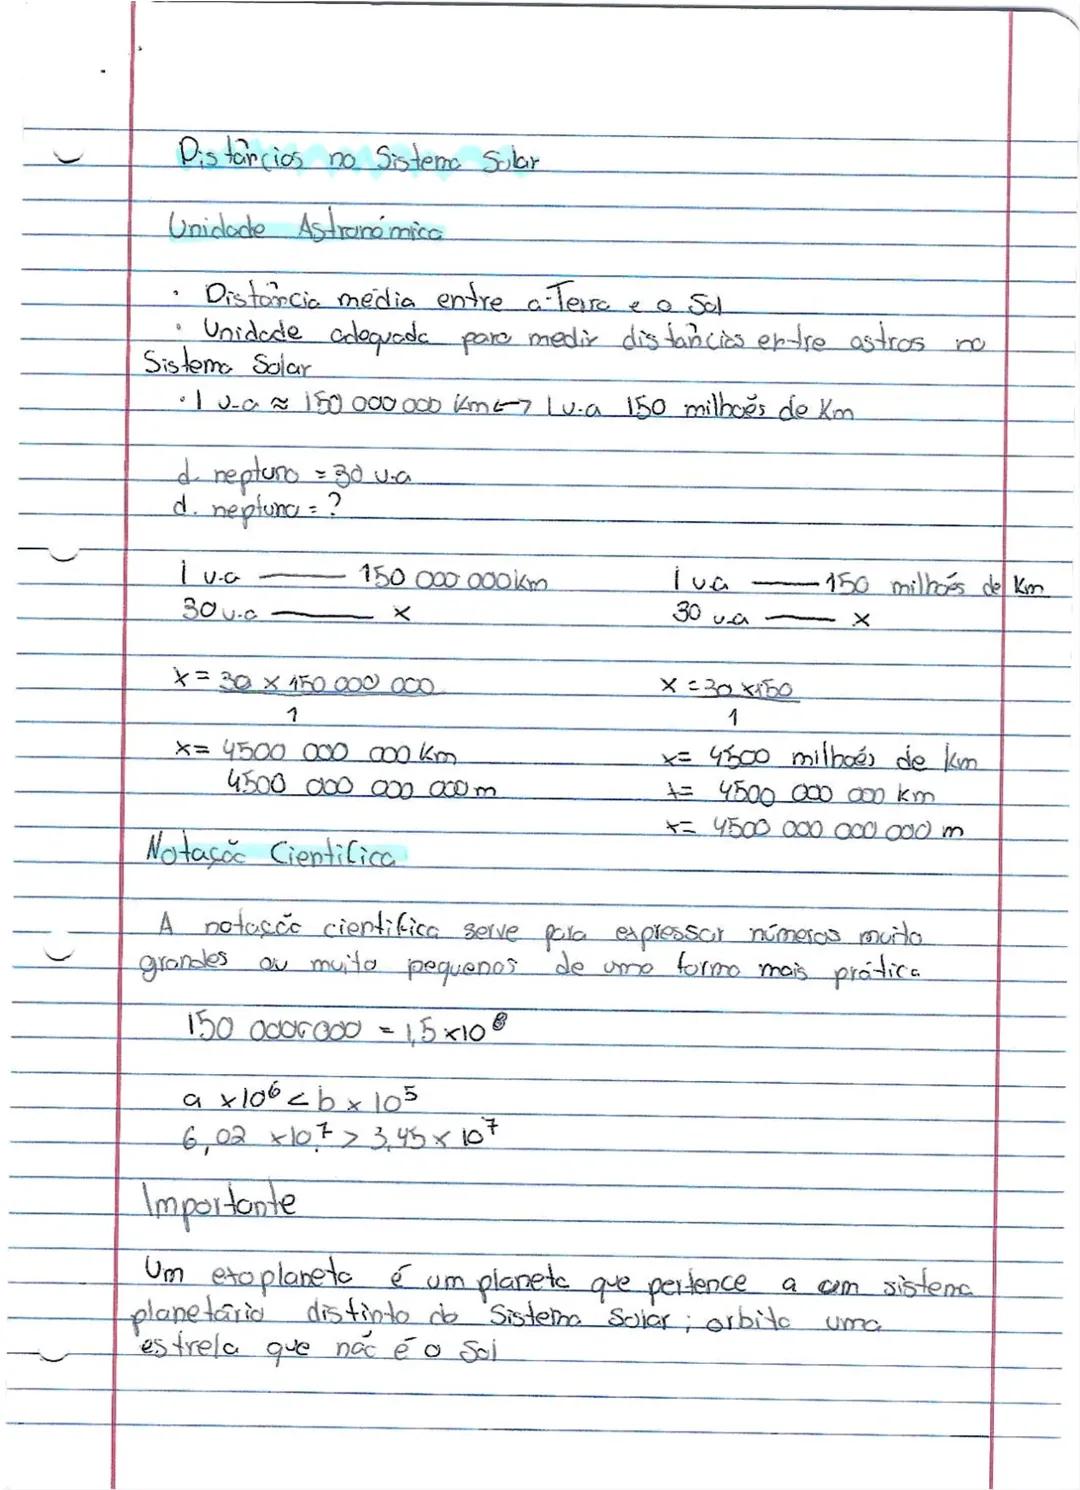 Distâncias no Sistema Solar
Unidade Astronómica
• Distância média entre a Terra e o Sol
• Unidade adequada para medir distâncias entre astros no
Sistema Solar
• 1 u.a ≈ 150 000 000 Km ↔ 1 u.a 150 milhoẽs de Km
d. neptuno = 30 u.a
d. neptuno = ?
1 u.a —— 150 000 000 km
30 u.a —— x
x = 30 x 150 000 000
1
x = 4500 000 000 Km
4500 000 000 000 m
1 u.a —— 150 milhoẽs de Km
30 u.a —— x
x = 30 x 150
1
x = 4500 milhoẽs de km
x = 4500 000 000 km
x = 4500 000 000 000 m
Notação Cientifica
A notação cientifica serve para expressar números muito
grandes ou muito pequenos de uma forma mais prática
150 000 000 = 1,5 x 10⁸
a x 10⁶ < b x 10⁵
6,02 x 10⁷ > 3,45 x 10⁷
Importante
Um exoplaneta é um planeta que pertence a um sistema
planetário distinto do Sistema Solar; orbita uma
estrela que não é o Sol